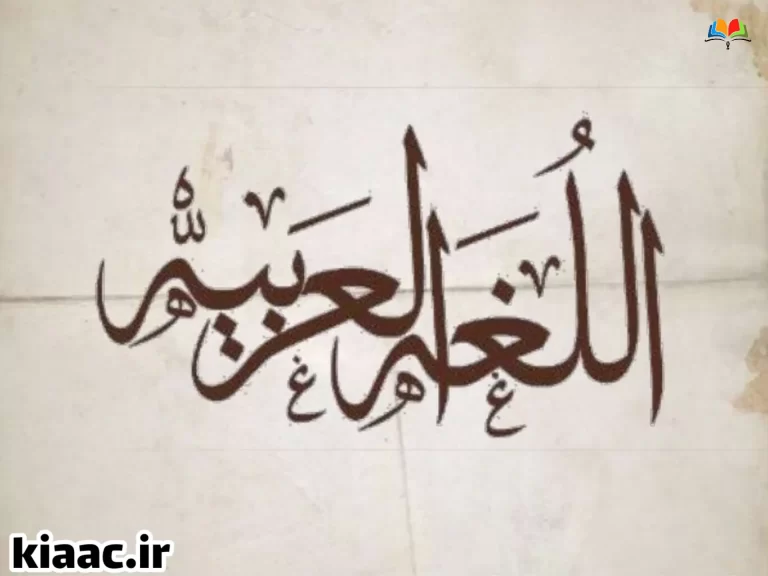 اللُغه العربيّه
kiaac.ir